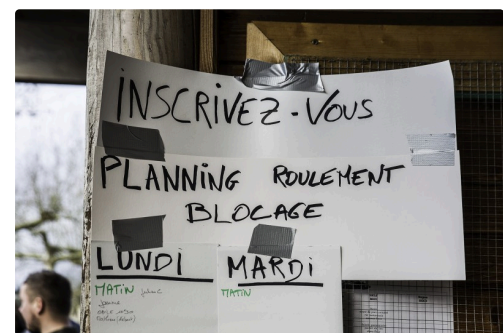 INSCRIVEZ-VOUS
PLANNING ROULEMENT
BLOCAGE
LUNDI
MATIN
MARDI
MATIN